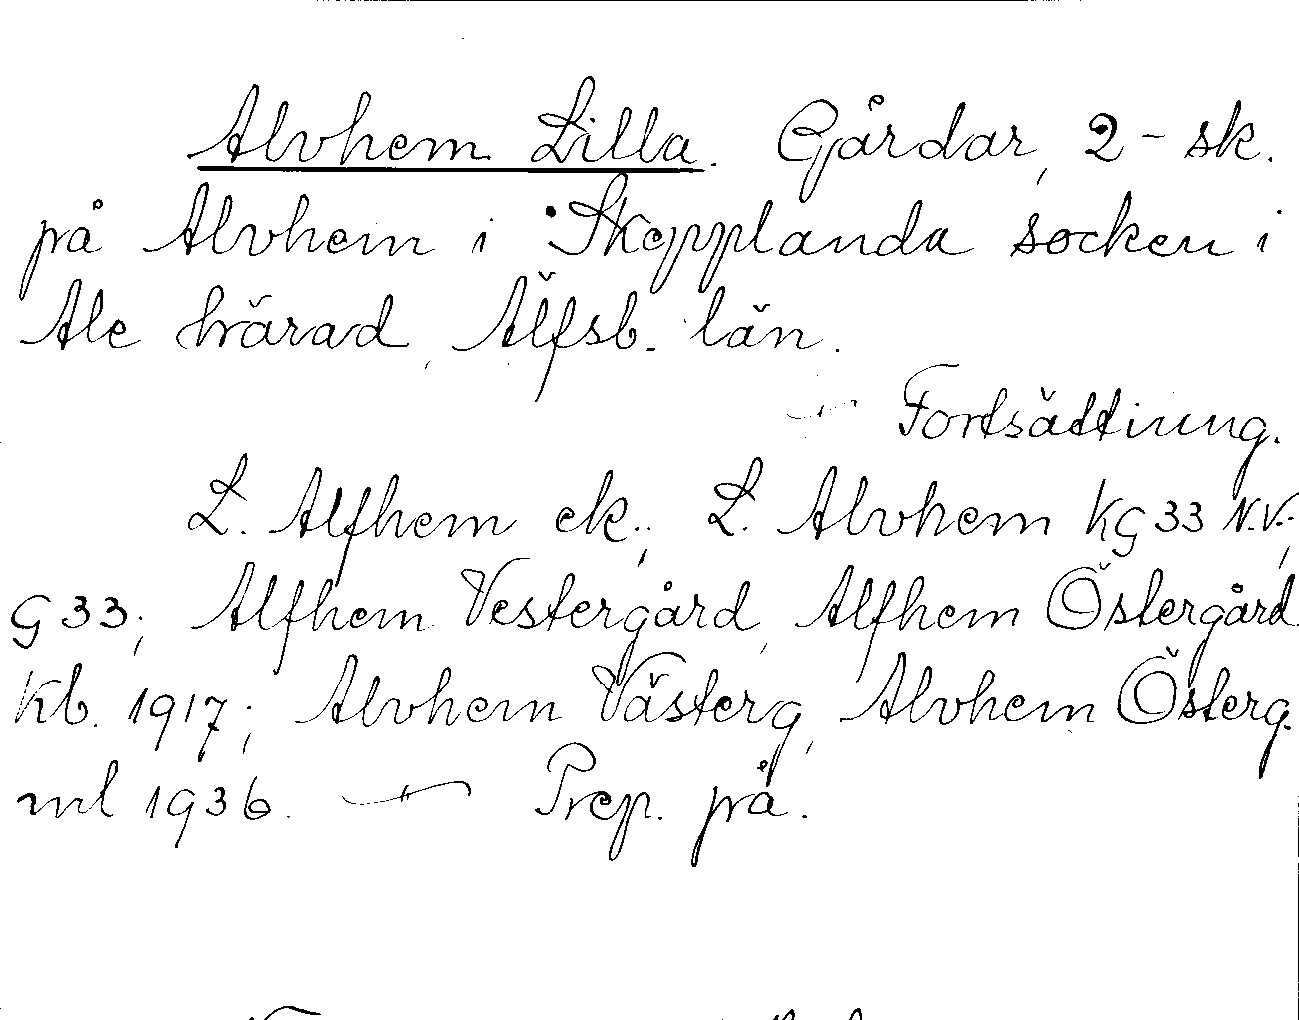 Alvhem Lilla. Gårdar, 2-sk.
på Alvhem i Skepplanda socken i
Ale härad, Älfsb. län.
— Fortsättning.
L. Alfhem ek.; L. Alvhem KG33 N.V.;
G33; Alfhem Vestergård, Alfhem Östergård
Kb. 1917; Alvhem Västerg, Alvhem Österg.
ml 1936. — Prep. på.